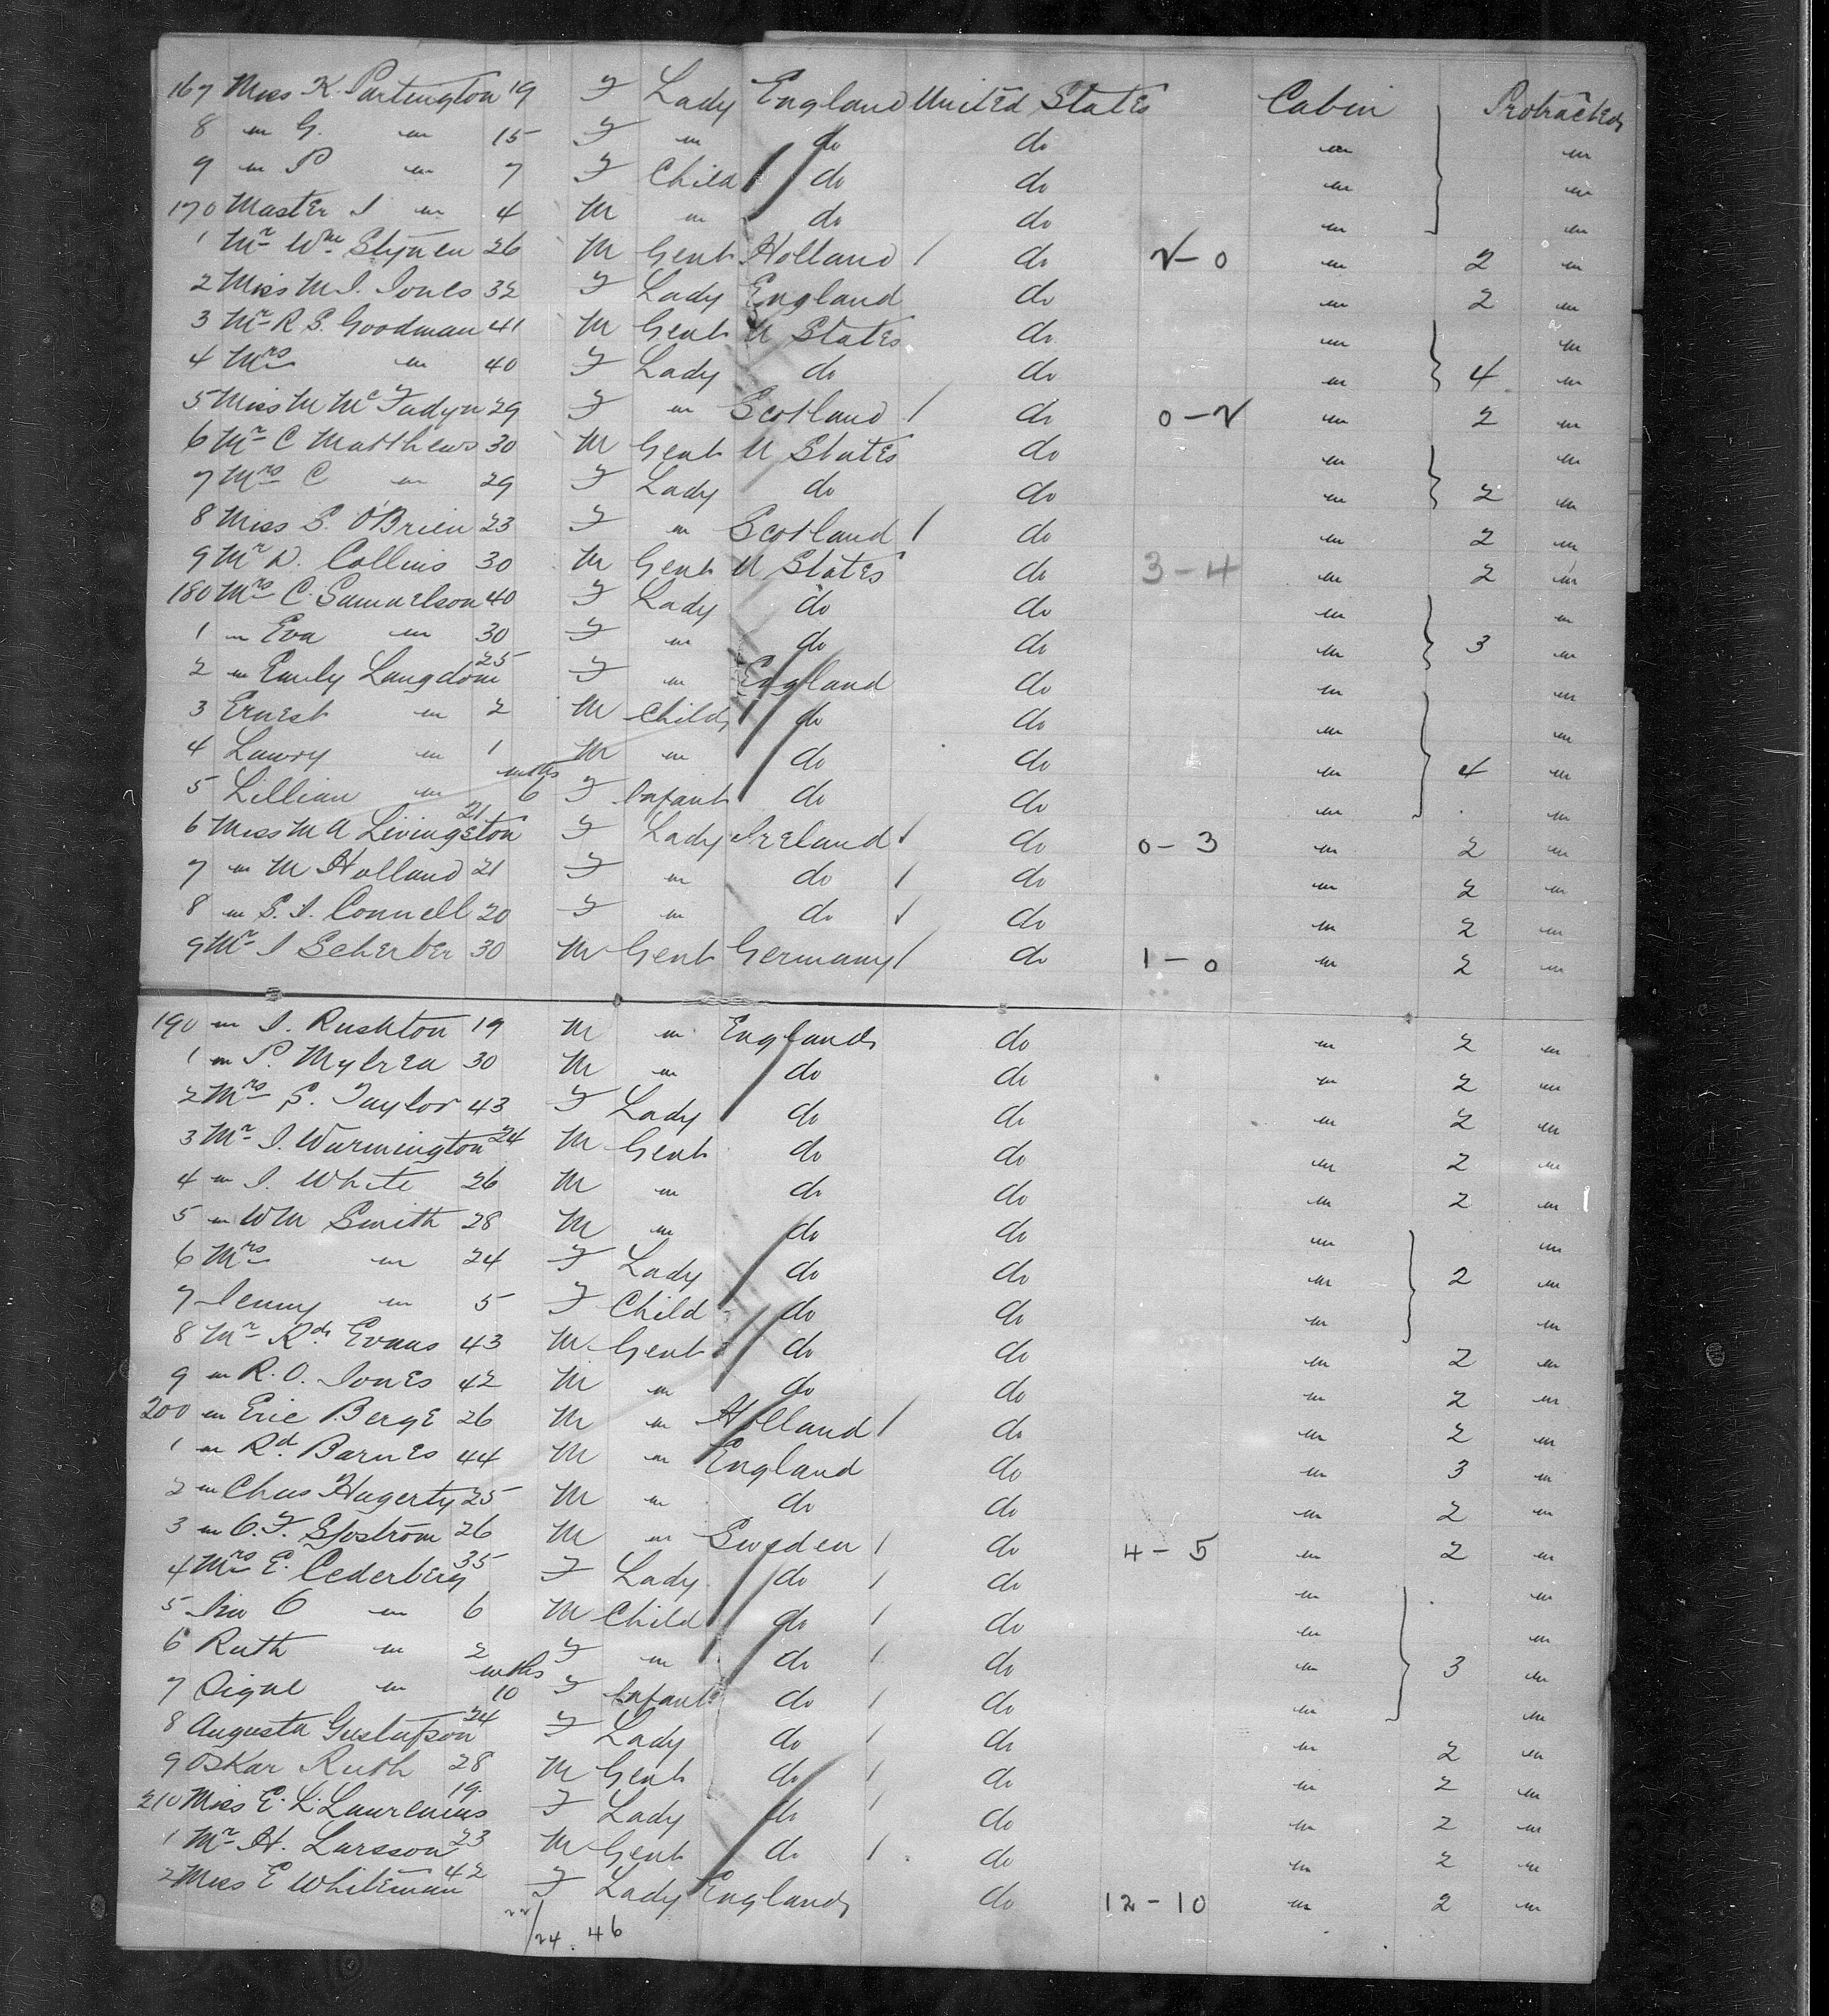 167 Miss K. Partington 19 F Lady England United States Cabin Protracted
8 " G. " 15 F " do do " "
9 " P " 7 F Child do do " "
170 Master J " 4 M " do do " "
1 Mr Wm Stijnen 26 M Gent Holland / do 2-0 " 2 "
2 Miss M. J. Jones 32 F Lady England do " 2 "
3 Mr R S. Goodman 41 M Gent U States do " "
4 Mrs " 40 F Lady do do " 4 "
5 Miss M McFadyn 29 F " Scotland / do 0-2 " 2 "
6 Mr C Matthews 30 M Gent U States do " "
7 Mrs C " 29 F Lady do do " 2 "
8 Miss S. O'Brien 23 F " Scotland / do " 2 "
9 Mr D. Collins 30 M Gent U States do 3-4 " 2 "
180 Mrs C. Samuelson 40 F Lady do do " "
1 " Eva " 30 F " do do " 3 "
2 " Emily Langdon 25 F " England do " "
3 Ernest " 2 M Child do do " "
4 Lawry " 1 M " do do " 4 "
5 Lillian " mths 6 F Infant do do " "
6 Miss M A Livingston 21 F Lady Ireland / do 0-3 " 2 "
7 " M Holland 21 F " do / do " 2 "
8 " S. J. Connell 20 F " do / do " 2 "
9 Mr J Scherber 30 M Gent Germany / do 1-0 " 2 "
190 " J. Rushton 19 M " England do " 2 "
1 " P. Mylrea 30 M " do do " 2 "
2 Mrs S. Taylor 43 F Lady do do " 2 "
3 Mr J. Warmington 24 M Gent do do " 2 "
4 " J. White 26 M " do do " 2 "
5 " WM Smith 28 M " do do " "
6 Mrs " 24 F Lady do do " 2 "
7 Jenny " 5 F Child do do " "
8 Mr Rd Evans 43 M Gent do do " 2 "
9 " R. O. Jones 42 M " do do " 2 "
200 " Eric Berge 26 M " Holland / do " 2 "
1 " Rd Barnes 44 M " England do " 3 "
2 " Chas Hagerty 25 M " do do " 2 "
3 " C. F. Sjostrom 26 M " Sweden / do 4-5 " 2 "
4 Mrs E. Cederberg 35 F Lady do / do " "
5 C " 6 M Child do / do " "
6 Ruth " 2 F " do / do " 3 "
7 Signe " mths 10 F Infant do / do " "
8 Augusta Gustafson 24 F Lady do / do " 2 "
9 Oskar Ruth 28 M Gent do / do " 2 "
210 Miss E. L. Laurenius 19 F Lady do / do " 2 "
1 Mr H. Larsson 23 M Gent do / do " 2 "
2 Miss E Whiteman 42 F Lady England do 12-10 " 2 "
22/24. 46